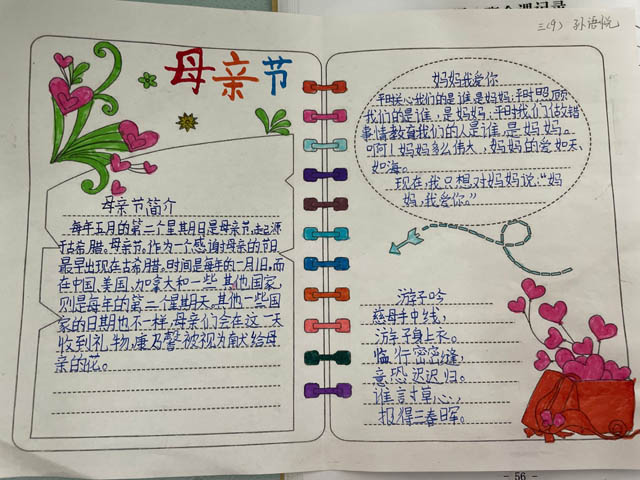 三(9) 孙语悦
母亲节
母亲节简介
每年五月的第二个星其月日是母亲节,起源
于古希腊。母亲节。作为一个感谢母亲的节日
最早出现在古希腊。时间是每年的一月1日。而
在中国、美国、加拿大和一些其他国家,
则是每年的第二个星期天。其他一些国
家的日期也不一样,母亲们会在这一天
收到礼物,康乃馨被视为献给母
亲的花。
妈妈我爱你
平时关心我们的是谁,是妈妈;平时照顾
我们的是谁,是妈妈;平时我们做错
事情教育我们的人是谁,是妈妈。
啊!妈妈多么伟大,妈妈的爱如天、
如海。
现在,我只想对妈妈说:“妈
妈,我爱你。”
游子吟
慈母手中线,
游子身上衣。
临行密密缝,
意恐迟迟归。
谁言寸草心,
报得三春晖。
- 56 -